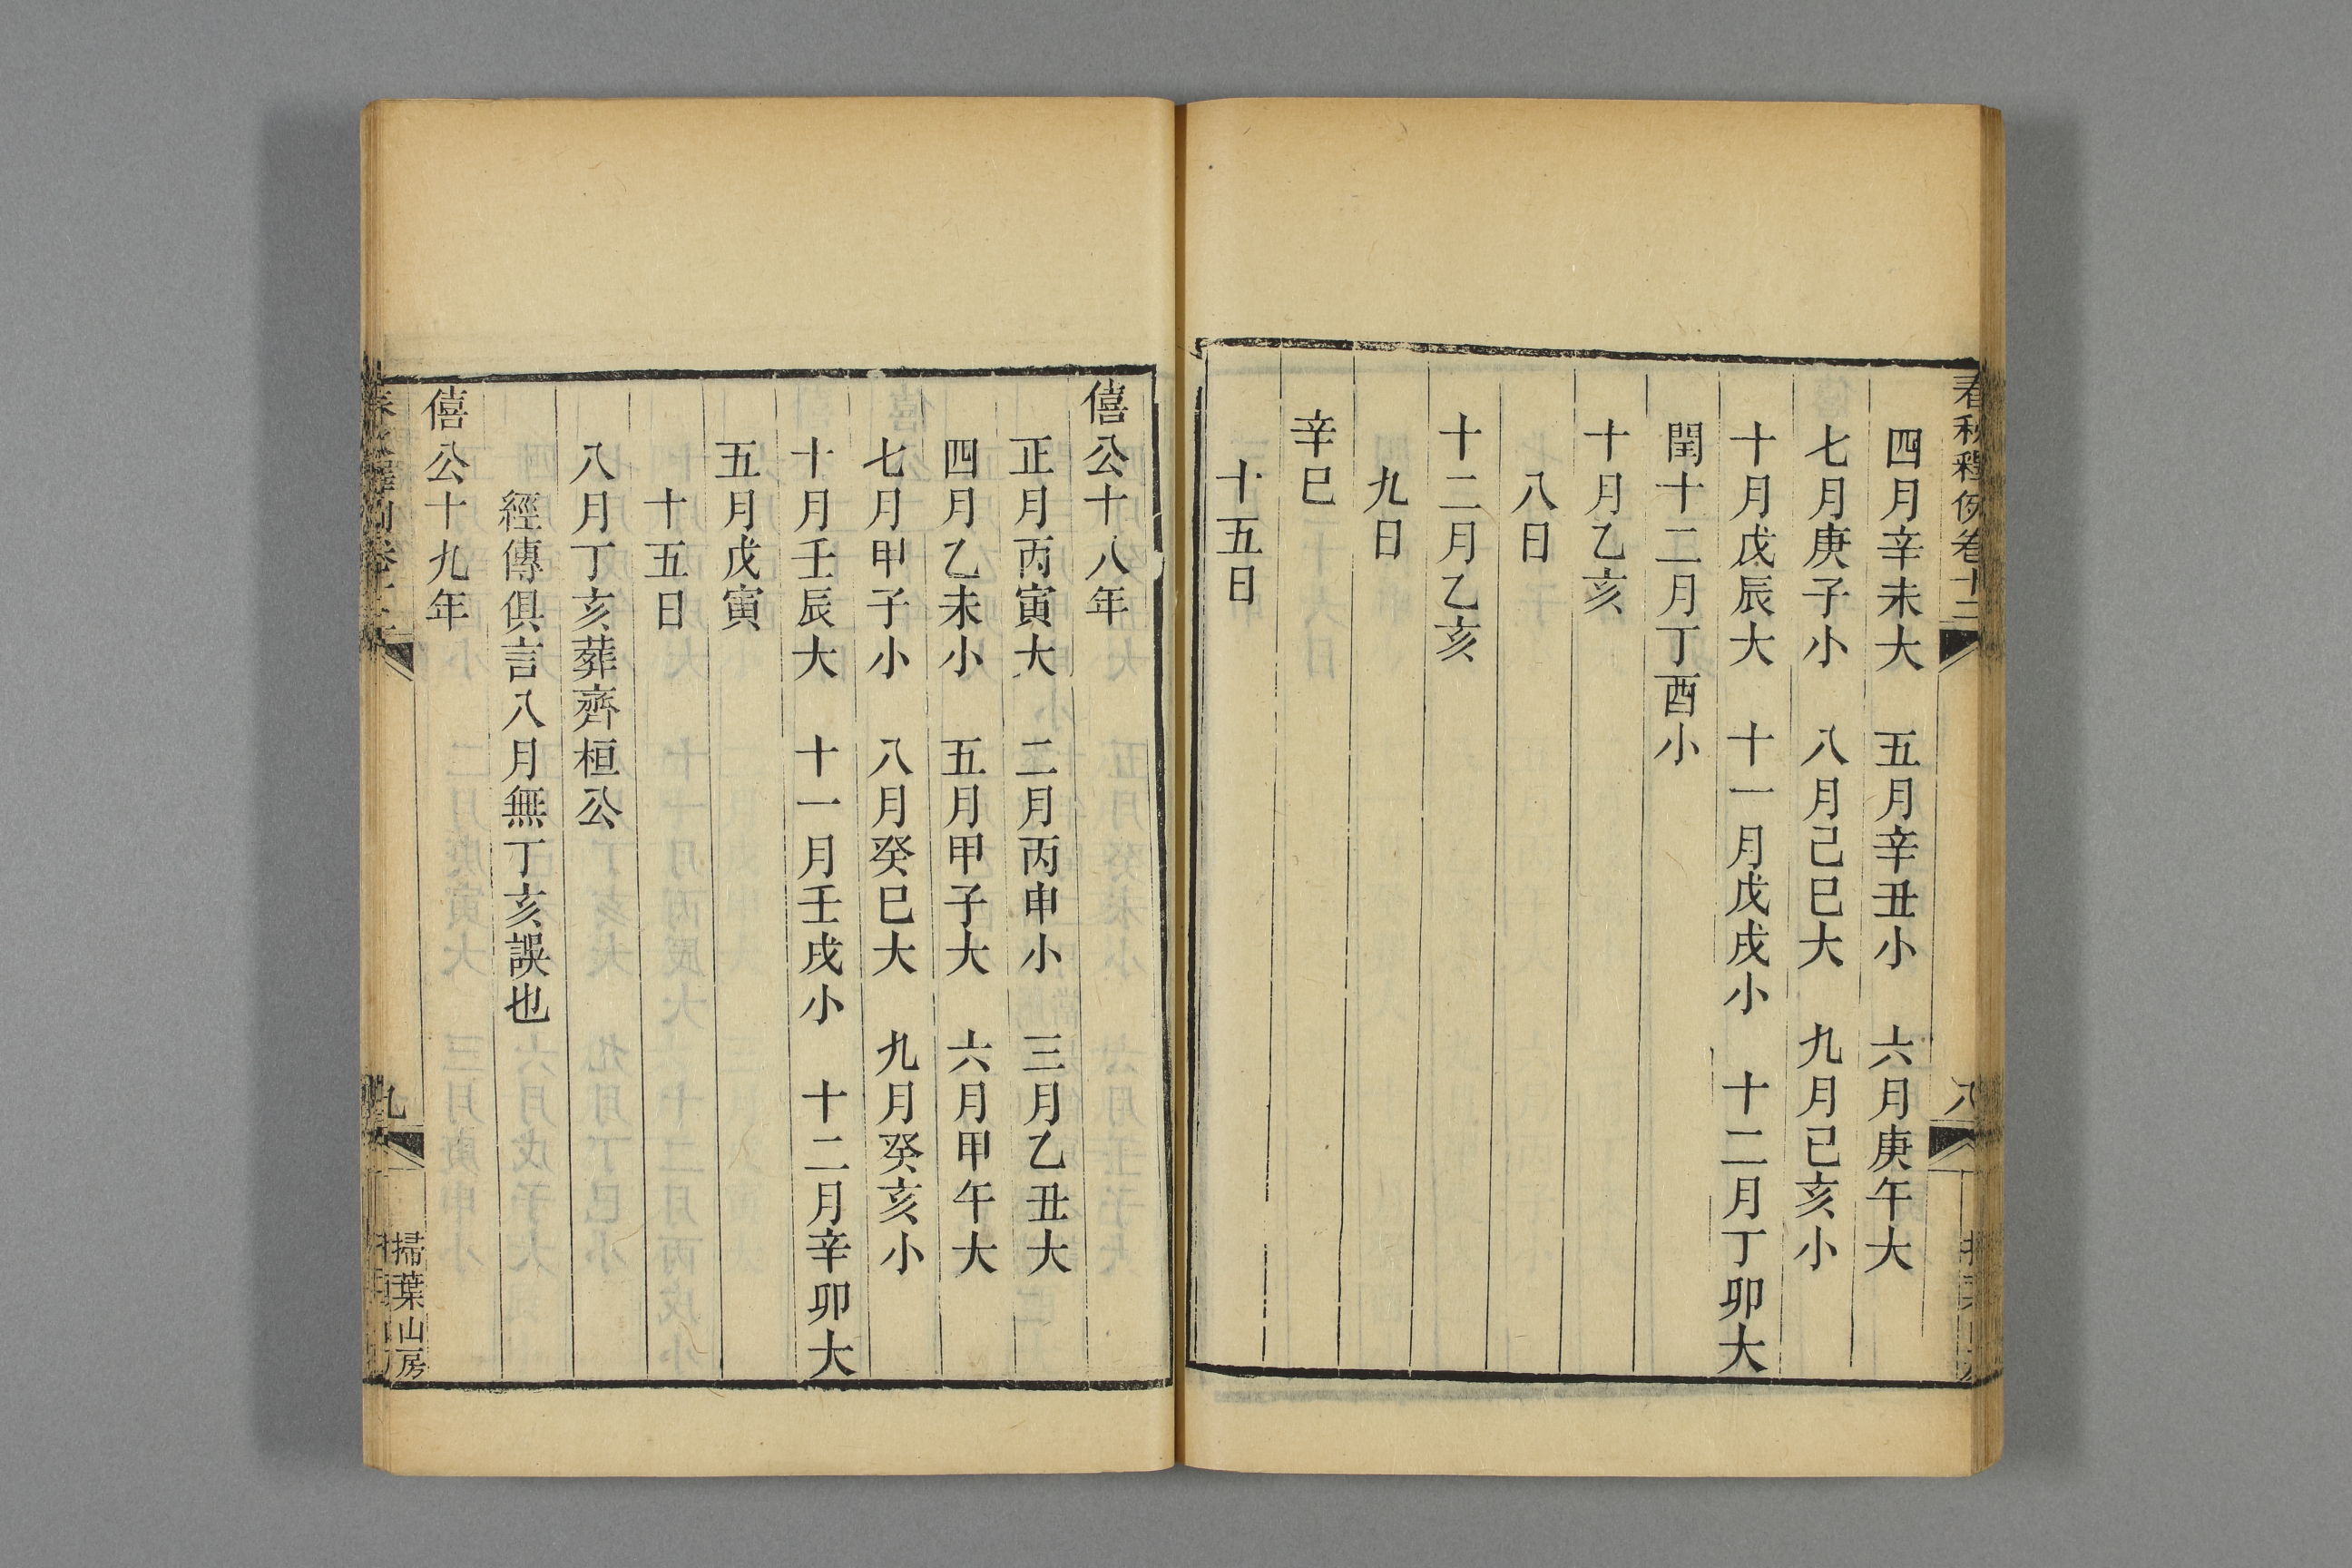 春秋釋例卷十二
四月辛未大　五月辛丑小　六月庚午大
七月庚子小　八月己巳大　九月已亥小
十月戊辰大　十一月戊戌小　十二月丁卯大
閏十二月丁酉小
十月乙亥
八日
十二月乙亥
九日
辛巳
十五日
八
僖公十八年
正月丙寅大　二月丙申小　三月乙丑大
四月乙未小　五月甲子大　六月甲午大
七月甲子小　八月癸巳大　九月癸亥小
十月壬辰大　十一月壬戌小　十二月辛卯大
五月戊寅
十五日
八月丁亥葬齊桓公
經傳俱言八月無丁亥誤也
僖公十九年
九
掃葉山房